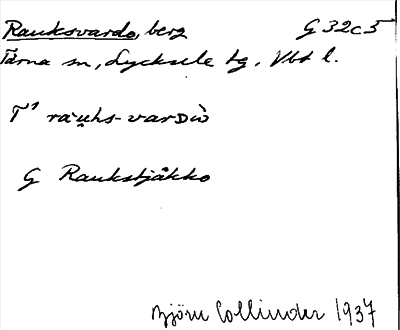 Rauksvardo, berg G 32c5
Tärna sn, Lycksele tg, Vbt l.
T¹ ràu̯hs-vardò
G Raukstjåkko
Björn Collinder 1937